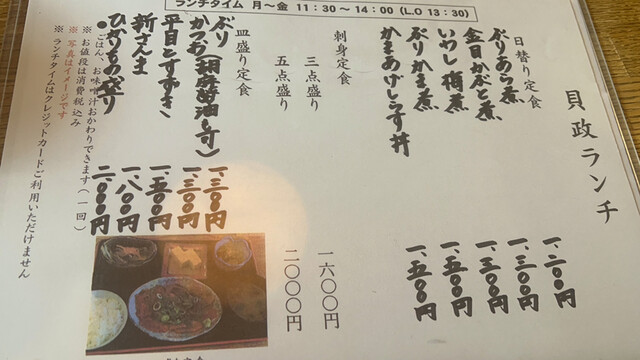 ランチタイム 月～金 11:30～14:00 (L.O 13:30)
貝政ランチ
日替り定食
ぶりあら煮 一、二〇〇円
金目かぶと煮 一、三〇〇円
いわし梅煮 一、三〇〇円
ぶりかま煮 一、五〇〇円
かまあげしらす丼 一、五〇〇円
刺身定食
三点盛り 一六〇〇円
五点盛り 二〇〇〇円
皿盛り定食
ぶり 一、三〇〇円
かつお(胡麻醤油 一、三〇〇円
平目とすずき 一、五〇〇円
新さんま 一、八〇〇円
ひかりもの盛り 二、〇〇〇円
●ごはん、お味噌汁おかわりできます(一回)
※お値段は消費税込み
※写真はイメージです
※ランチタイムはクレジットカードご利用いただけません